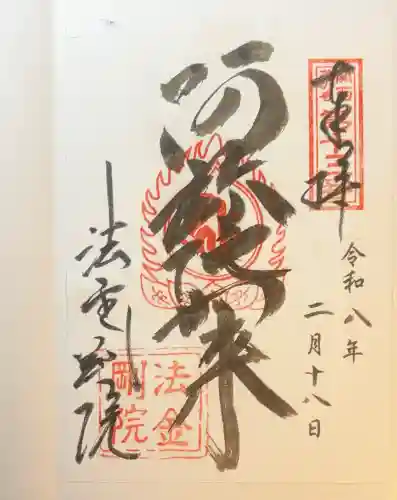 奉拝
令和八年
二月十八日
阿弥陀如来
法金剛院
法金
剛院